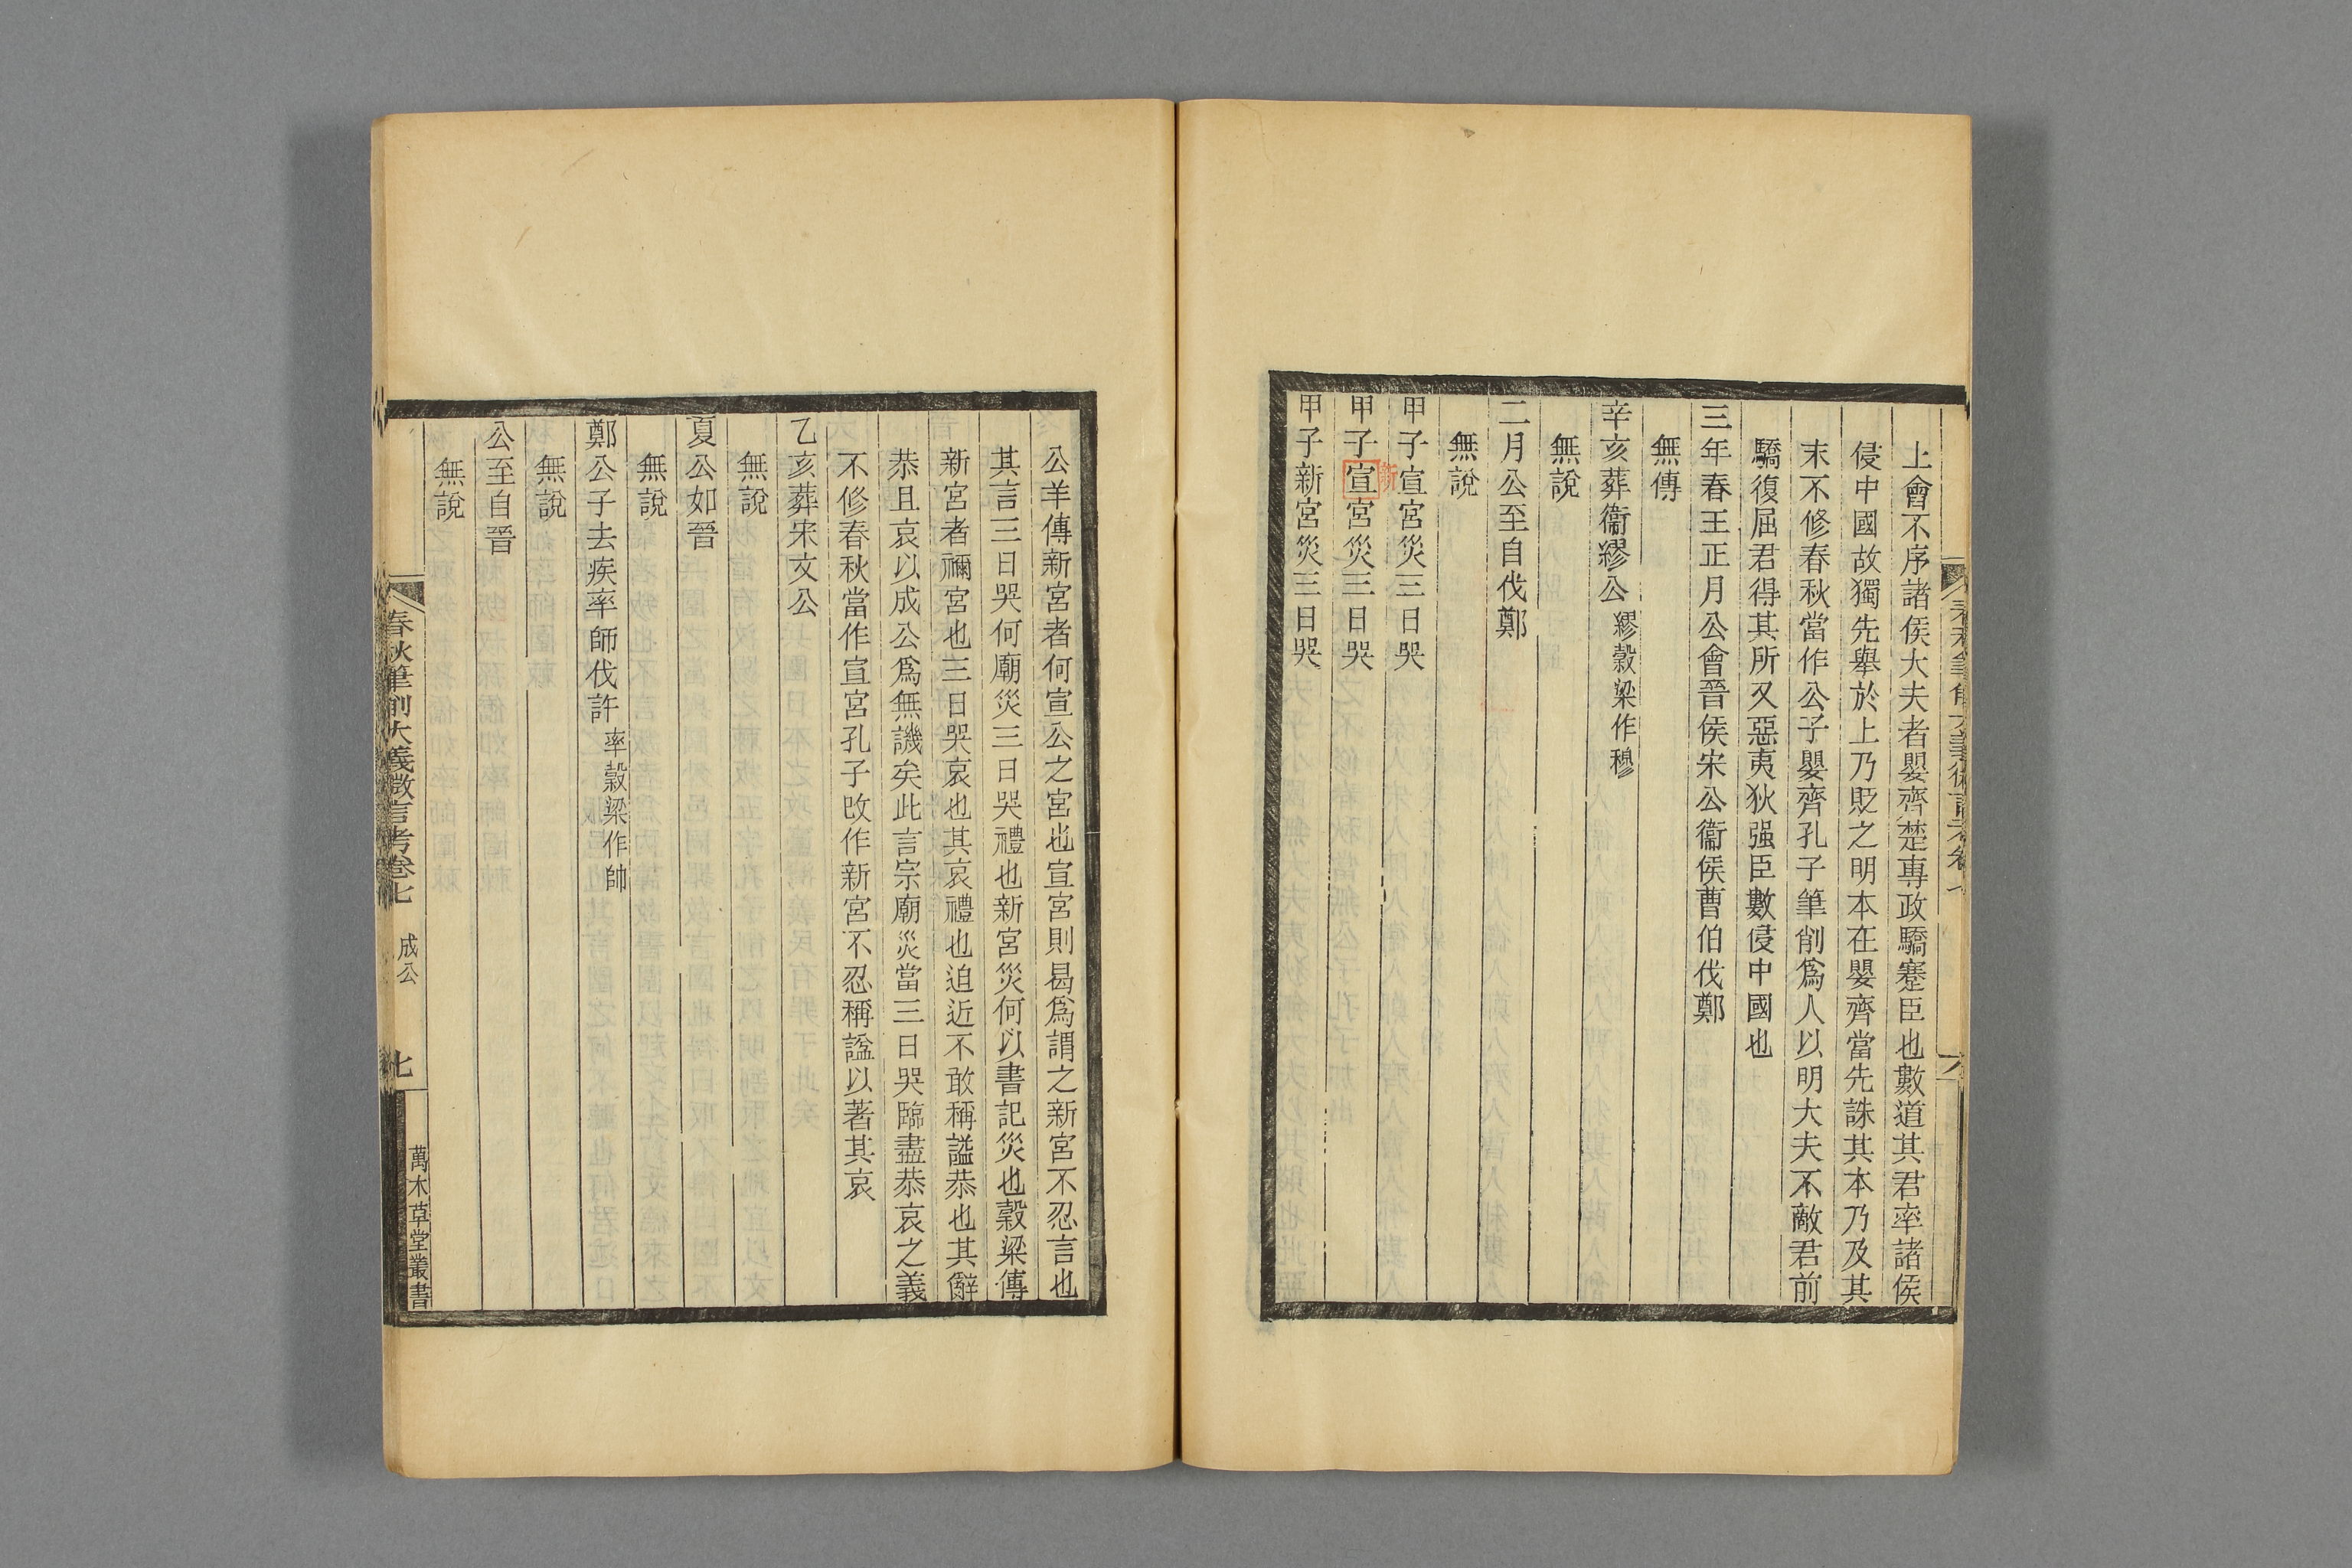 上會不序諸侯大夫者嬰齊楚專政驕蹇臣也數道其君率諸侯
侵中國故獨先舉於上乃貶之明本在嬰齊當先誅其本乃及其
末不修春秋當作公子嬰齊孔子筆削爲人以明大夫不敵君前
驕復屈君得其所又惡夷狄强臣數侵中國也
三年春王正月公會晉侯宋公衞侯曹伯伐鄭
無傳
辛亥葬衞繆公 繆穀梁作穆
無說
二月公至自伐鄭
無說
甲子宣宮災三日哭
新
甲子宣宮災三日哭
甲子新宮災三日哭
公羊傳新宮者何宣公之宮也宣宮則曷爲謂之新宮不忍言也
其言三日哭何廟災三日哭禮也新宮災何以書記災也穀梁傳
新宮者禰宮也三日哭哀也其哀禮也迫近不敢稱謚恭也其辭
恭且哀以成公爲無譏矣此言宗廟災當三日哭臨盡恭哀之義
不修春秋當作宣宮孔子改作新宮不忍稱謚以著其哀
乙亥葬宋文公
無說
夏公如晉
無說
鄭公子去疾率師伐許 率穀梁作帥
無說
公至自晉
無說
春秋筆削大義微言考卷七 成公 七 萬木草堂叢書